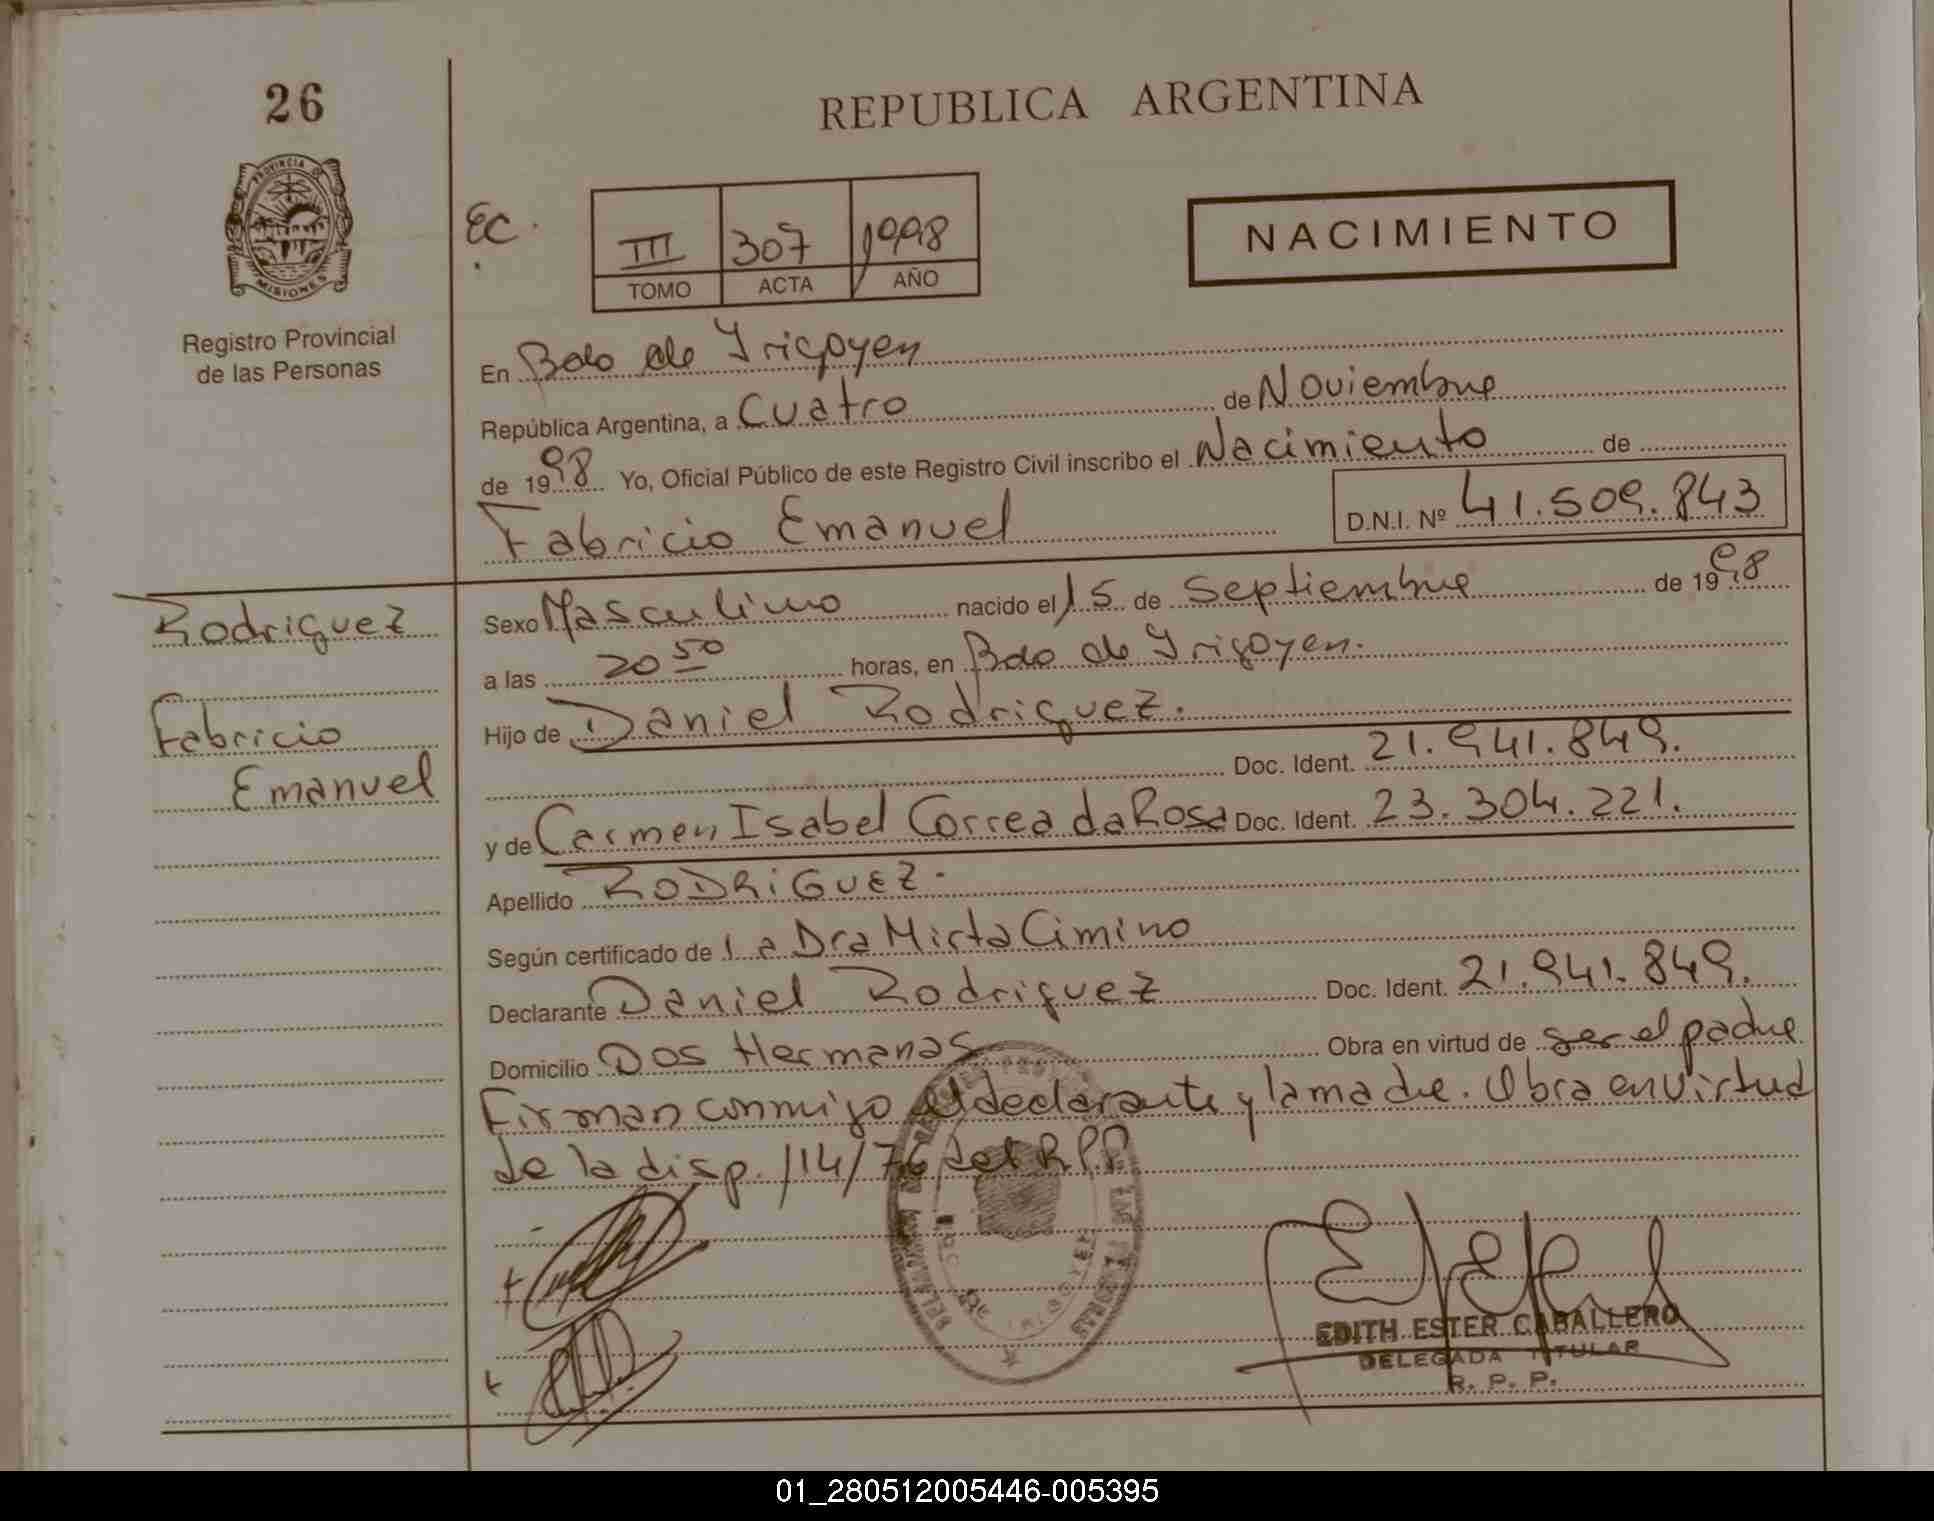 26
REPUBLICA ARGENTINA
PROVINCIA DE
MISIONES
Registro Provincial
de las Personas
EC.
III 307 1998
TOMO ACTA AÑO
NACIMIENTO
En Bdo de Yrigoyen
República Argentina, a Cuatro de Noviembre
de 1998 Yo, Oficial Público de este Registro Civil inscribo el Nacimiento de
Fabricio Emanuel D.N.I. Nº 41.509.843
Rodriguez
Fabricio
Emanuel
Sexo Masculino nacido el 15 de Septiembre de 1998
a las 20 50 horas, en Bdo de Yrigoyen.
Hijo de Daniel Rodriguez.
Doc. Ident. 21.941.849.
y de Carmen Isabel Correa da Rosa Doc. Ident. 23.304.221.
Apellido RODRIGUEZ.
Según certificado de la Dra Mirta Cimino
Declarante Daniel Rodriguez Doc. Ident. 21.941.849.
Domicilio Dos Hermanas Obra en virtud de ser el padre
Firman conmigo el declarante y la madre. Obra en virtud
de la disp. 114/76 del R.P.P
EDITH ESTER CABALLERO
DELEGADA TITULAR
R. P. P.
01_280512005446-005395